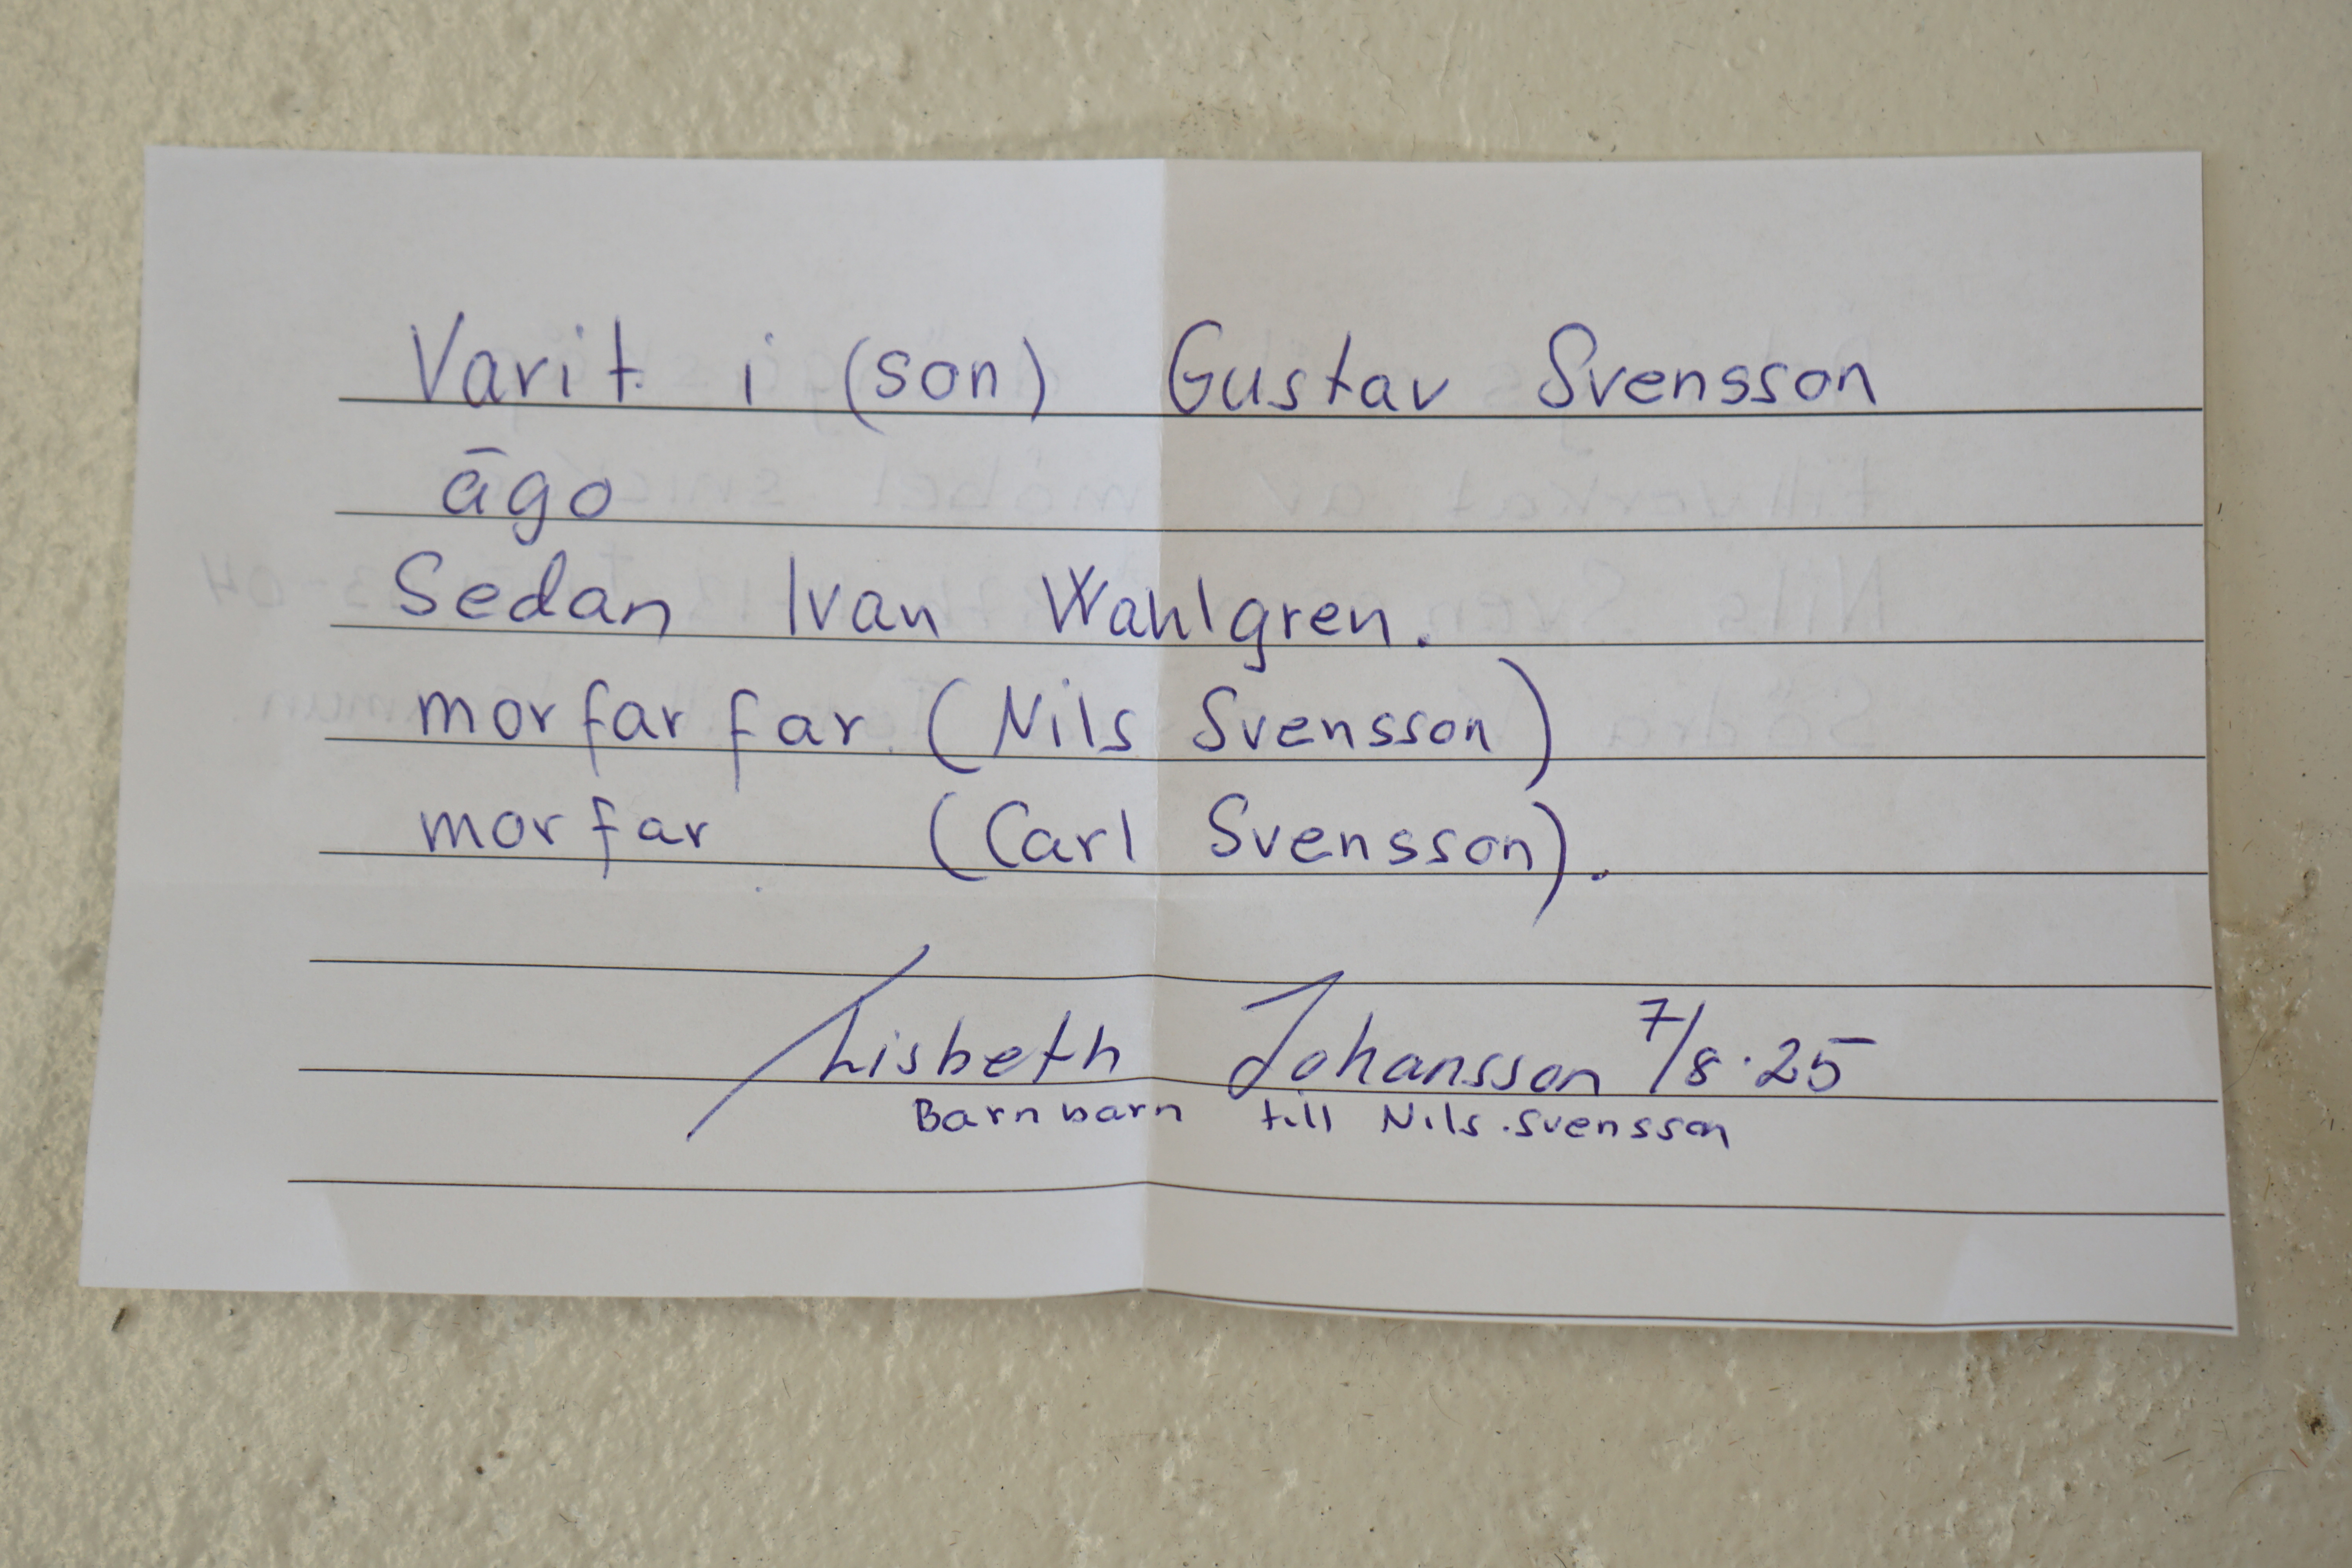 Varit i (son) Gustav Svensson
ägo
Sedan Ivan Wahlgren.
morfar far (Nils Svensson)
morfar (Carl Svensson).
Lisbeth Johansson 7/8·25
Barnbarn till Nils Svensson